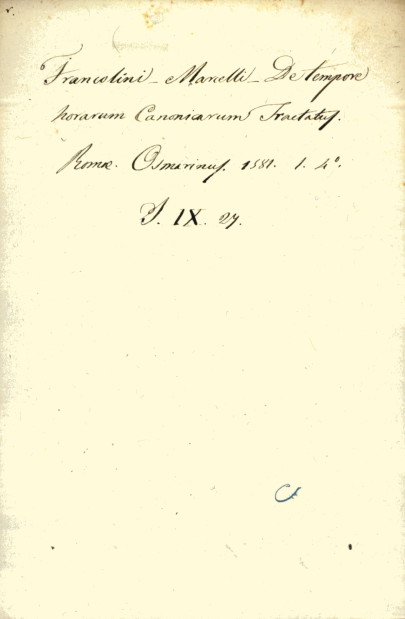 Francolini - Marcelli - De tempore
horarum Canonicarum Tractatus.
Romæ. Osmarinus. 1581. 1. 4º.
IX. 27.